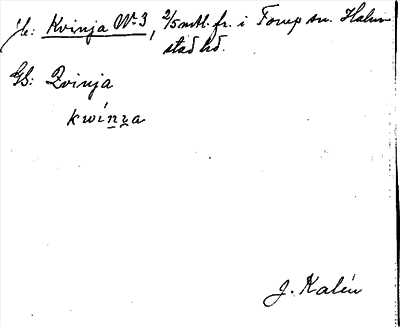 Jb: Kvinja № 3, 2/5 mtl. fr. i Torup sn. Halm-
stad hd.
GB: Qvinja
kwinja
J. Kalén